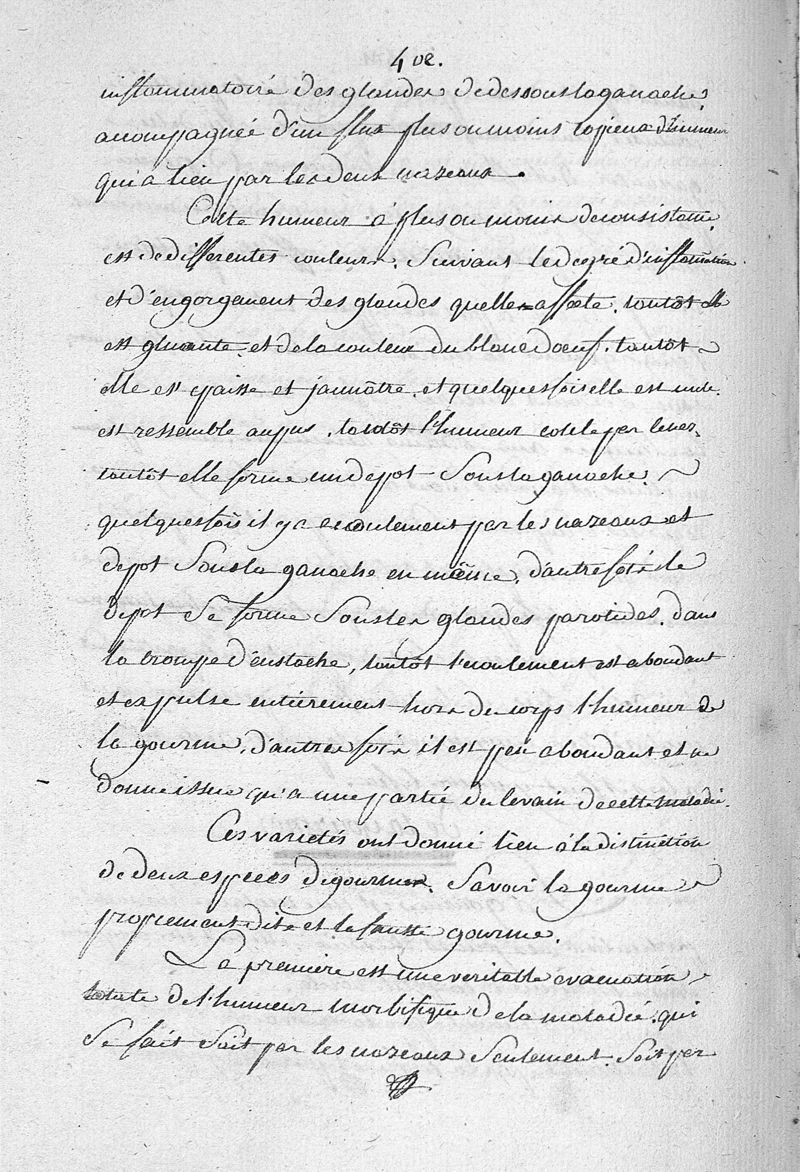 402.
inflammatoire des glandes de dessous la ganache,
acompagnée d'un flux plus ou moins copieux d'humeur
qui a lieu par les deux nazeaux.
Cette humeur à plus ou moins de consistance.
est de differentes couleurs. Suivant le degré d'inflammation
et d'engorgement des glandes quelle affecte. tantôt elle
est gluante et de la couleur du blanc d'oeuf. tantôt
elle est epaisse et jaunâtre. et quelques fois elle est
est ressemble au pus. tantôt l'humeur coule par le nez,
tantôt elle forme un depot Sous la ganache.
quelques fois il y a ecoulement par les nazeaux et
depot Sous la ganache en même. d'autre fois le
depot Se forme Sous les glandes parotides. dans
la trompe d'eustache, tantôt l'ecoulement est abondant
et expulse entierement hors de corps l'humeur de
la gourme. d'autre fois il est peu abondant et ne
donne issue qu'a une partie du levain de cette maladie.
Ces varietés ont donné lieu à la distinction
de deux especes de gourmes. Savoir la gourme
propiement dite et la fausse gourme.
La premiere est une veritable evacuation
totale de l'humeur morbifique de la maladie. qui
Se fait Soit par les nazeaux Seulement. Soit par